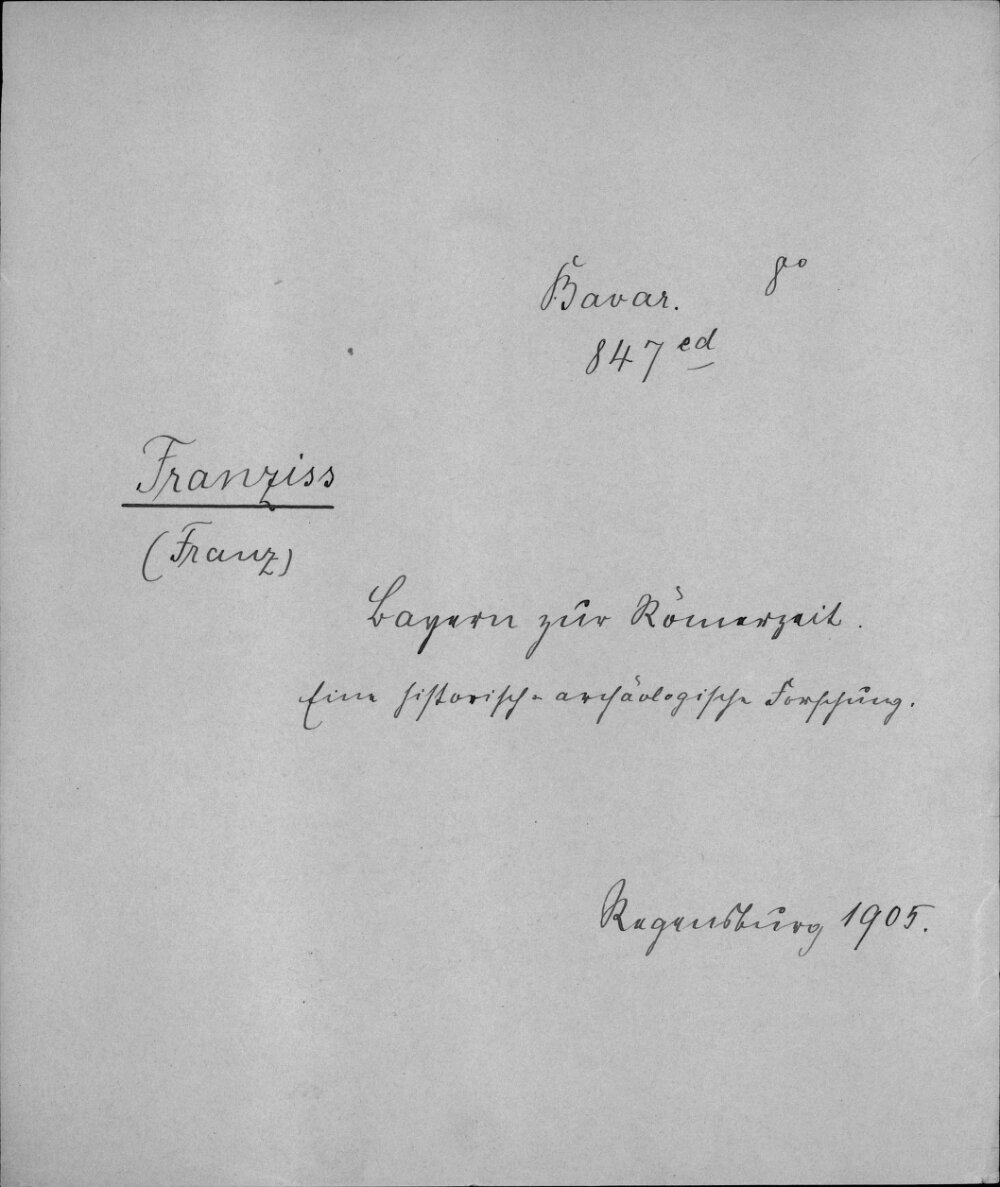 Bavar. 8°
847 ed
Franziss
(Franz)
Bayern zur Römerzeit.
Eine historisch-archäologische Forschung.
Regensburg 1905.